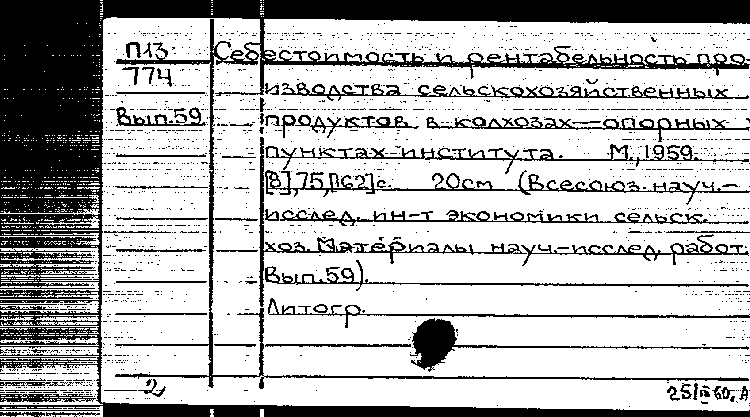 П13
774
Вып.59
Себестоимость и рентабельность про-
изводства сельскохозяйственных
продуктов в колхозах—опорных
пунктах института. М., 1959.
[8],75,[162]с. 20см (Всесоюз. науч.-
исслед. ин-т экономики сельск.
хоз. Материалы науч.-исслед. работ.
Вып.59).
Литогр.
2
25/III 60.